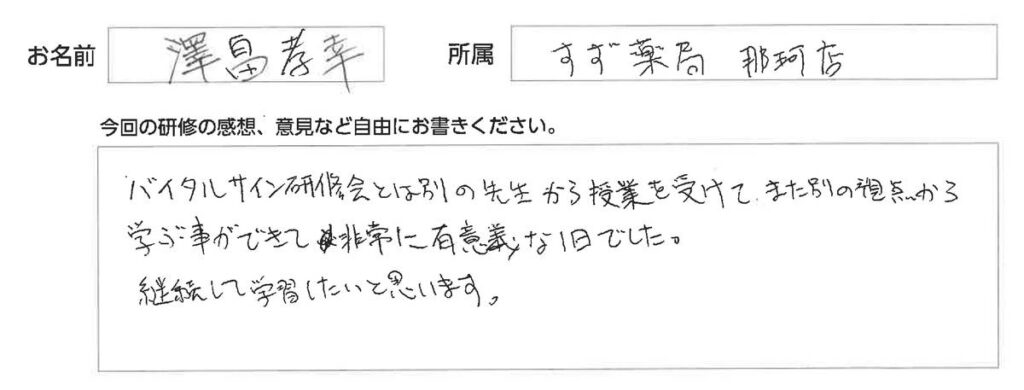 お名前 澤畠孝幸 所属 すず薬局 那珂店
今回の研修の感想、意見など自由にお書きください。
バイタルサイン研修会とは別の先生から授業を受けて、また別の視点から
学ぶ事ができて非常に有意義な1日でした。
継続して学習したいと思います。